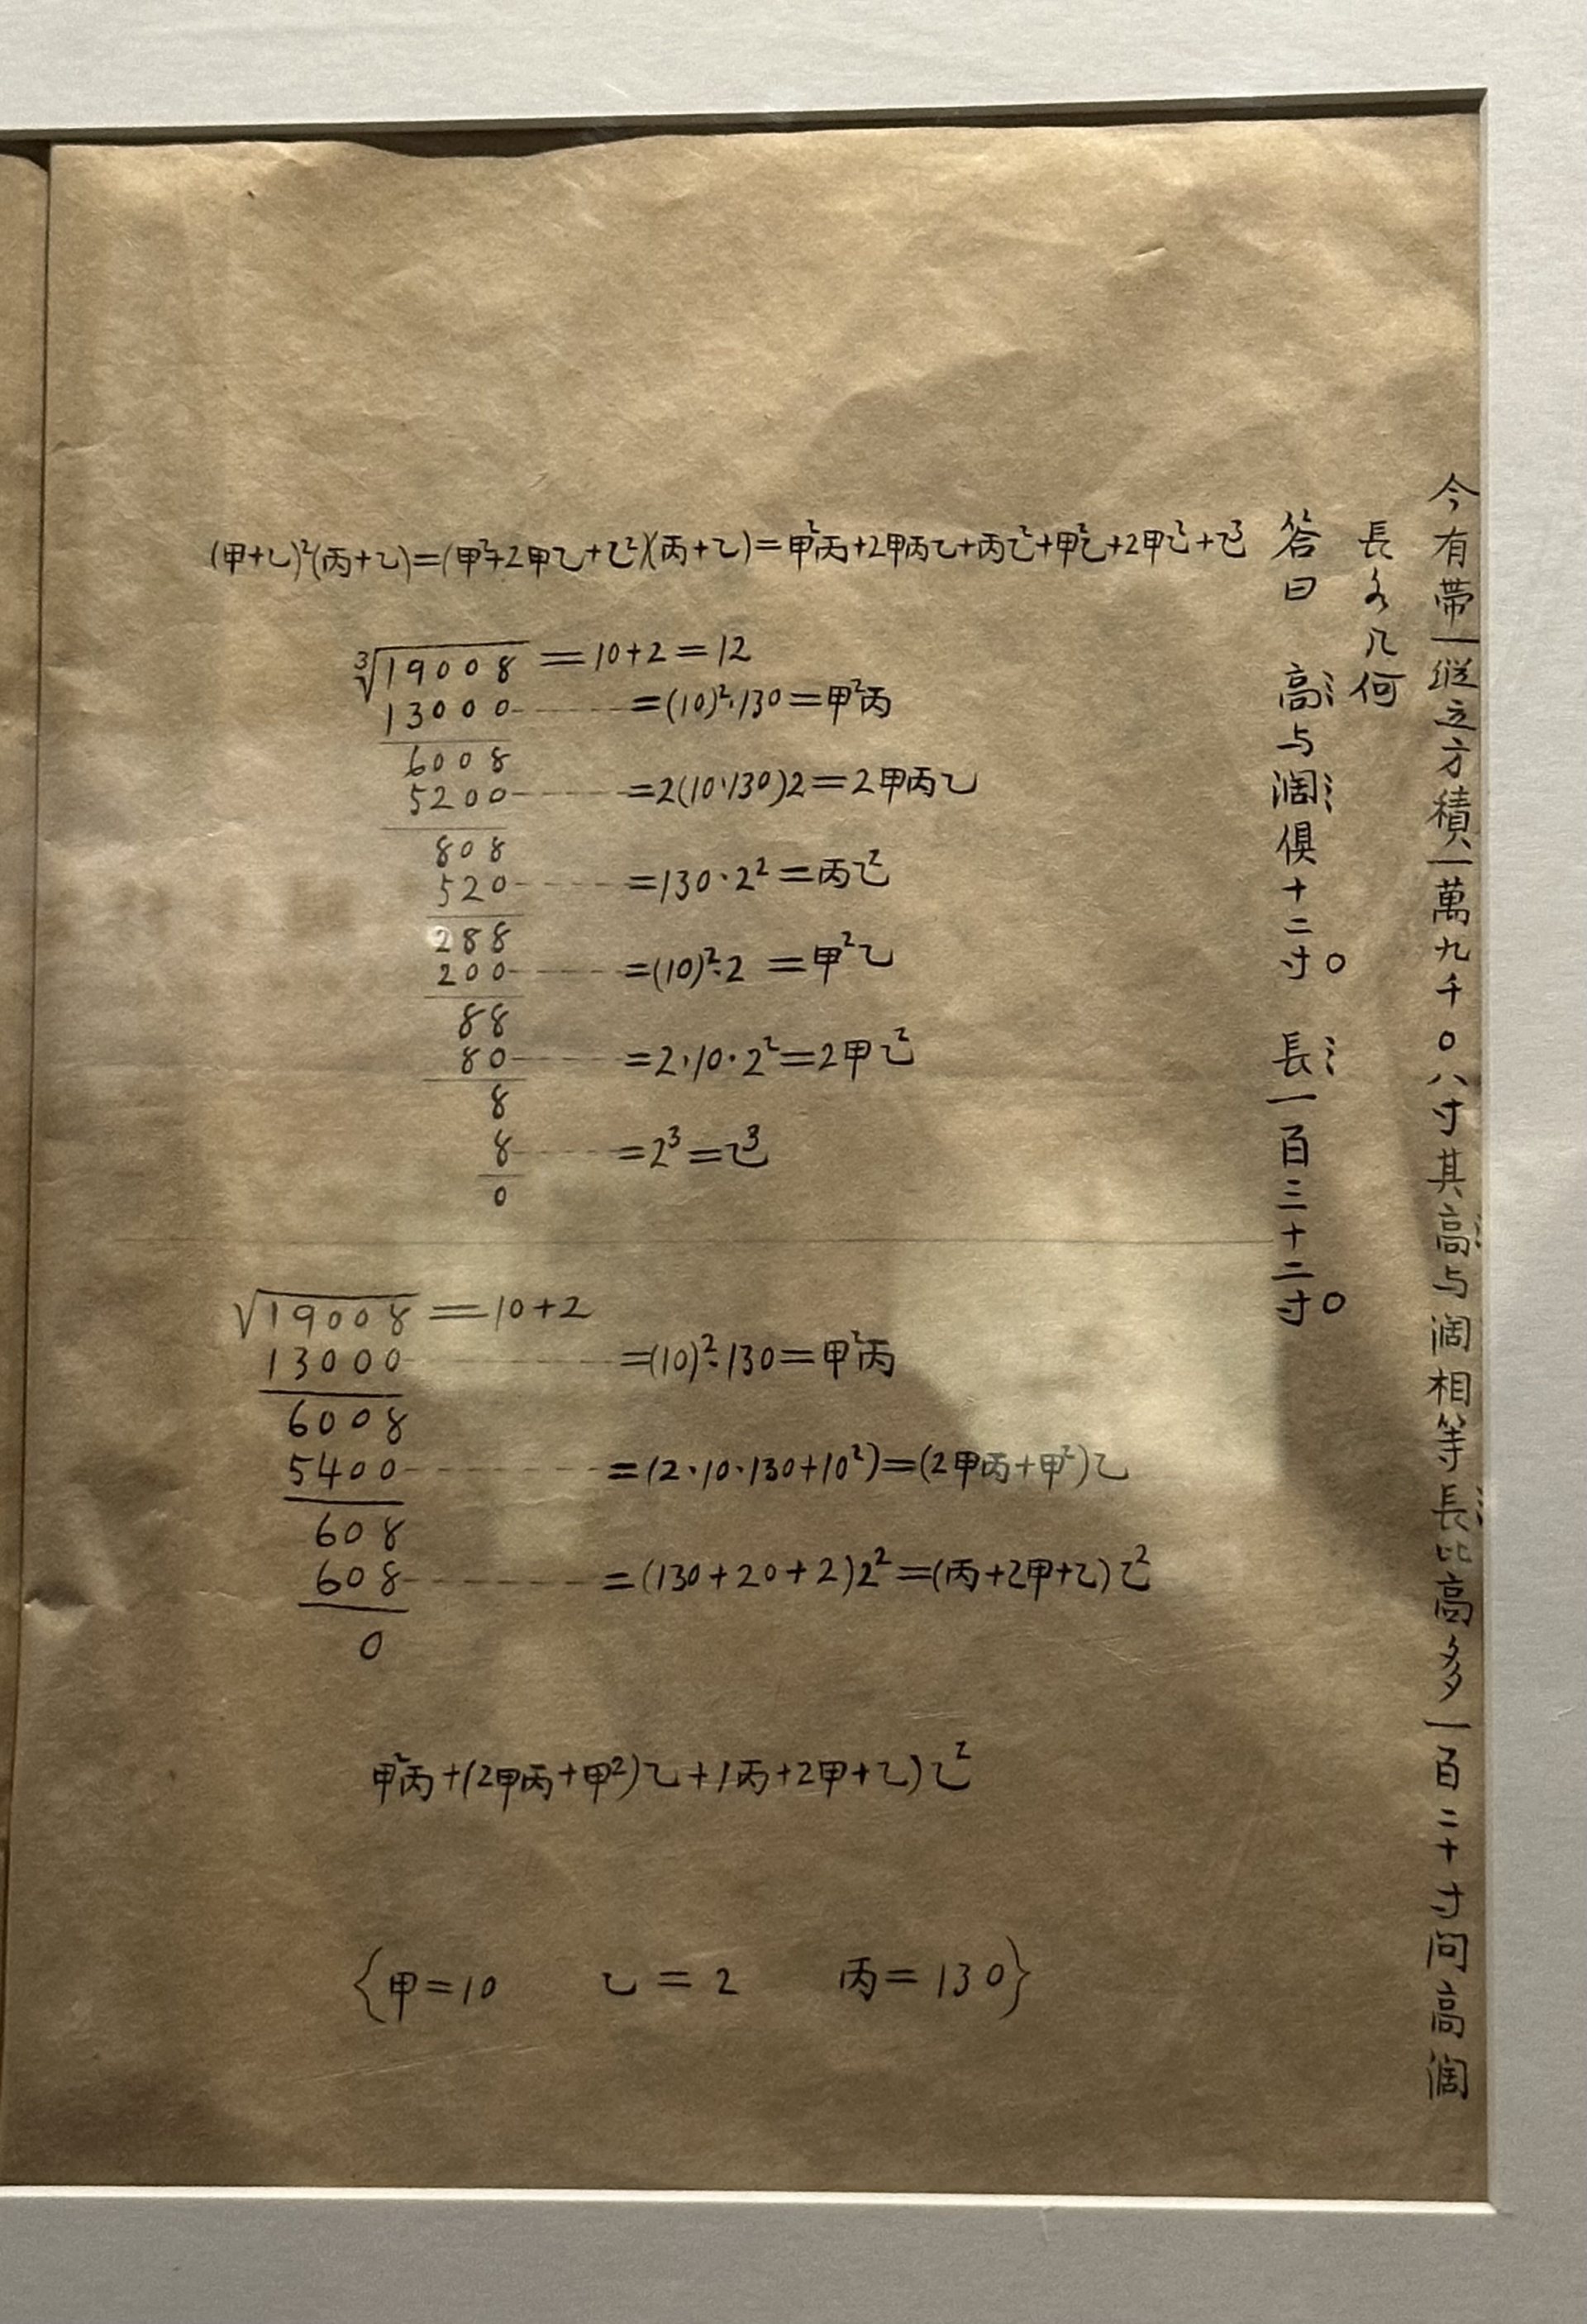 今有帶一縱立方積一萬九千〇八寸其高与阔相等長比高多一百二十寸问高阔
長各几何
答曰 高与阔俱十二寸〇 長一百三十二寸〇
(甲+乙)²(丙+乙)=(甲²+2甲乙+乙²)(丙+乙)=甲²丙+2甲丙乙+丙乙²+甲²乙+2甲乙²+乙³
∛19008=10+2=12
13000------=(10)²·130=甲²丙
6008
5200------=2(10·130)2=2甲丙乙
808
520------=130·2²=丙乙²
288
200------=(10)²·2=甲²乙
88
80------=2·10·2²=2甲乙²
8
8------=2³=乙³
0
√19008=10+2
13000------=(10)²·130=甲²丙
6008
5400------=(2·10·130+10²)=(2甲丙+甲²)乙
608
608------=(130+20+2)2²=(丙+2甲+乙)乙²
0
甲²丙+(2甲丙+甲²)乙+(丙+2甲+乙)乙²
{甲=10 乙=2 丙=130}